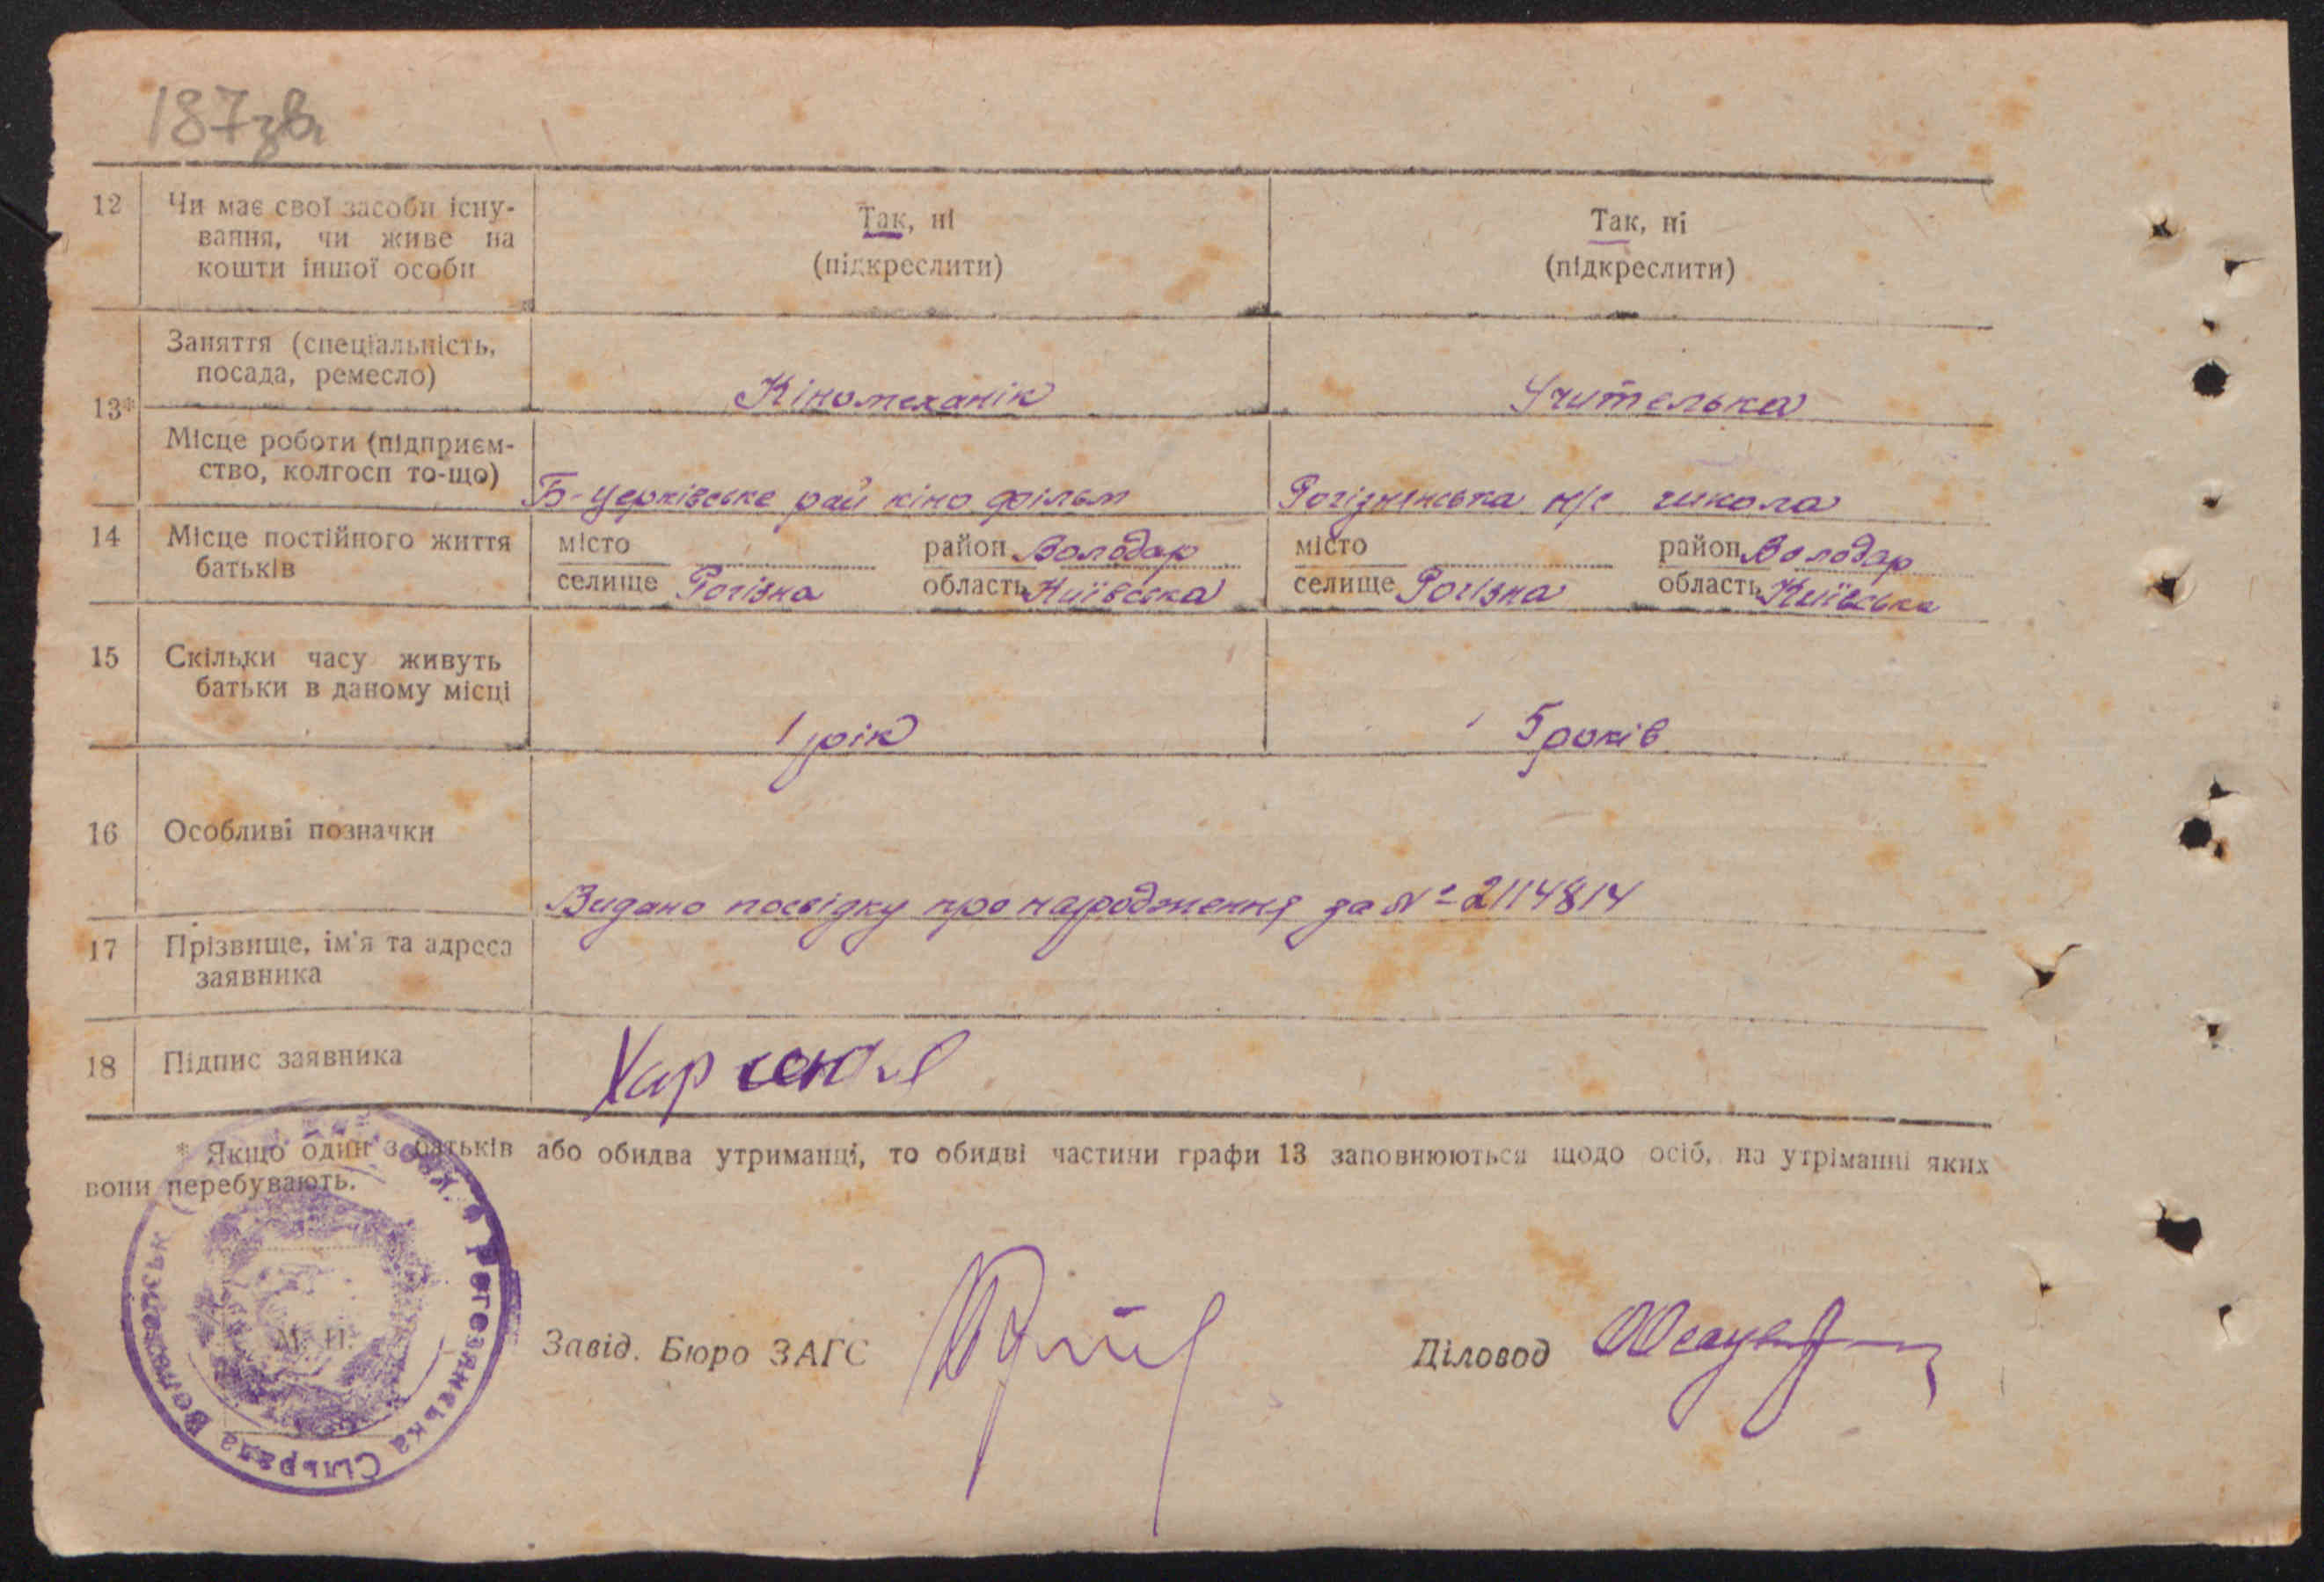 187зв.
12 Чи має свої засоби існу-
вання, чи живе на
кошти іншої особи
Так, ні
(підкреслити)
Так, ні
(підкреслити)
13*
Заняття (спеціальність,
посада, ремесло)
Кіномеханік
Учителька
Місце роботи (підприєм-
ство, колгосп то-що)
Б-Церківське рай кіно фільм
Рогізненська н/с школа
14 Місце постійного життя
батьків
місто район Володар
селище Рогізна область Київська
місто район Володар
селище Рогізна область Київська
15 Скільки часу живуть
батьки в даному місці
1 рік
5 років
16 Особливі позначки
Видано посвідку про народження за № 2114814
17 Прізвище, ім'я та адреса
заявника
18 Підпис заявника
* Якщо один з батьків або обидва утриманці, то обидві частини графи 13 заповнюються щодо осіб, на утріманні яких
вони перебувають.
М. П.
Сільрада
Завід. Бюро ЗАГС
Діловод